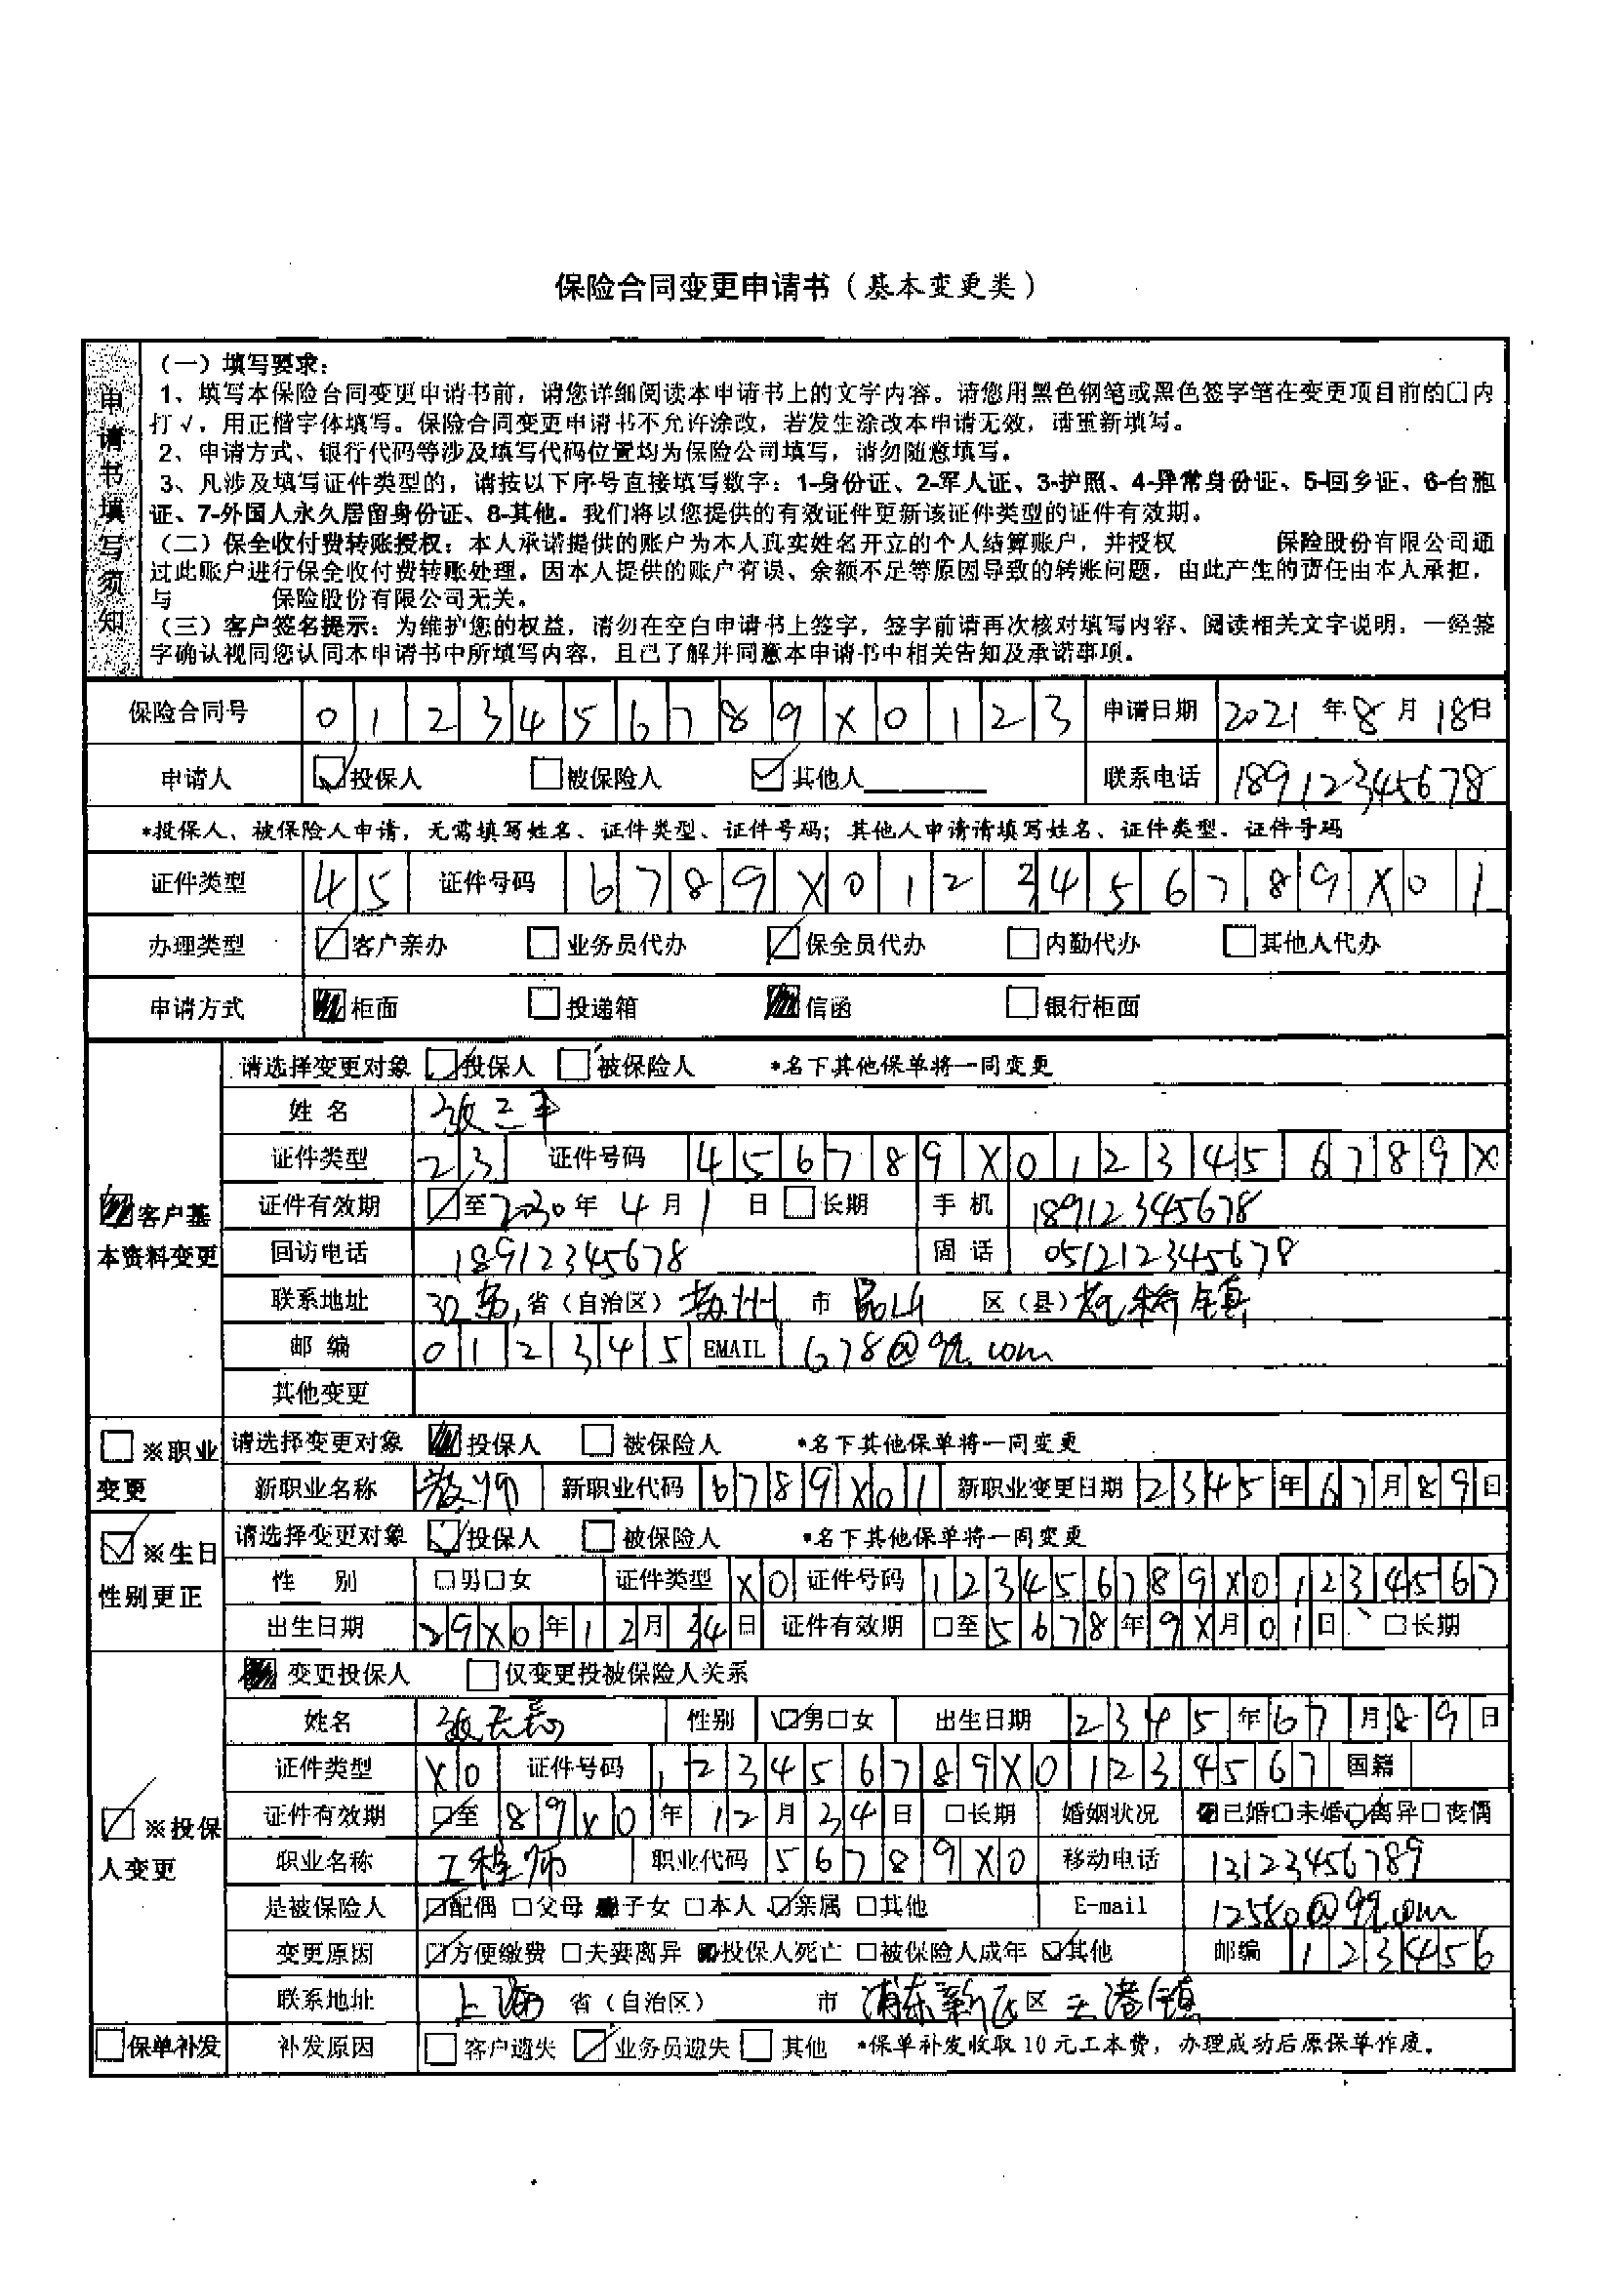 保险合同变更申请书（基本变更类）
申请书填写须知
（一）填写要求：
1、填写本保险合同变更申请书前，请您详细阅读本申请书上的文字内容。请您用黑色钢笔或黑色签字笔在变更项目前的□内
打√，用正楷字体填写。保险合同变更申请书不允许涂改，若发生涂改本申请无效，请重新填写。
2、申请方式、银行代码等涉及填写代码位置均为保险公司填写，请勿随意填写。
3、凡涉及填写证件类型的，请按以下序号直接填写数字：1-身份证、2-军人证、3-护照、4-异常身份证、5-回乡证、6-台胞
证、7-外国人永久居留身份证、8-其他。我们将以您提供的有效证件更新该证件类型的证件有效期。
（二）保全收付费转账授权：本人承诺提供的账户为本人真实姓名开立的个人结算账户，并授权 保险股份有限公司通
过此账户进行保全收付费转账处理。因本人提供的账户有误、余额不足等原因导致的转账问题，由此产生的责任由本人承担，
与 保险股份有限公司无关。
（三）客户签名提示：为维护您的权益，请勿在空白申请书上签字，签字前请再次核对填写内容、阅读相关文字说明，一经签
字确认视同您认同本申请书中所填写内容，且已了解并同意本申请书中相关告知及承诺事项。
保险合同号 0 1 2 3 4 5 6 7 8 9 X 0 1 2 3 申请日期 2021 年 8 月 18 日
申请人 ☑投保人 □被保险人 ☑其他人 联系电话 18912345678
*投保人、被保险人申请，无需填写姓名、证件类型、证件号码；其他人申请请填写姓名、证件类型、证件号码
证件类型 4 5 证件号码 6 7 8 9 X 0 1 2 3 4 5 6 7 8 9 X 0 1
办理类型 ☑客户亲办 □业务员代办 ☑保全员代办 □内勤代办 □其他人代办
申请方式 ■柜面 □投递箱 ■信函 □银行柜面
■客户基本资料变更
请选择变更对象 ☑投保人 □被保险人 *名下其他保单将一同变更
姓 名 张三丰
证件类型 2 3 证件号码 4 5 6 7 8 9 X 0 1 2 3 4 5 6 7 8 9 X
证件有效期 ☑至2030年 4 月 1 日 □长期 手 机 18912345678
回访电话 18912345678 固 话 051212345678
联系地址 江苏 省（自治区） 苏州 市 昆山 区（县） 花桥镇
邮 编 0 1 2 3 4 5 EMAIL 678@qq.com
其他变更
□※职业变更
请选择变更对象 ■投保人 □被保险人 *名下其他保单将一同变更
新职业名称 教师 新职业代码 6 7 8 9 X 0 1 新职业变更日期 2 3 4 5 年 6 7 月 8 9 日
☑※生日性别更正
请选择变更对象 ☑投保人 □被保险人 *名下其他保单将一同变更
性 别 □男□女 证件类型 X 0 证件号码 1 2 3 4 5 6 7 8 9 X 0 1 2 3 4 5 6 7
出生日期 2 9 X 0 年 1 2 月 3 4 日 证件有效期 □至 5 6 7 8 年 9 X 月 0 1 日 □长期
☑※投保人变更
■变更投保人 □仅变更投被保险人关系
姓名 张无忌 性别 ☑男□女 出生日期 2 3 4 5 年 6 7 月 8 9 日
证件类型 X 0 证件号码 1 2 3 4 5 6 7 8 9 X 0 1 2 3 4 5 6 7 国籍
证件有效期 ☑至 8 9 X 0 年 1 2 月 3 4 日 □长期 婚姻状况 ■已婚□未婚☑离异□丧偶
职业名称 工程师 职业代码 5 6 7 8 9 X 0 移动电话 12123456789
是被保险人 ☑配偶 □父母 ■子女 □本人 ☑亲属 □其他 E-mail 12580@qq.com
变更原因 ☑方便缴费 □夫妻离异 ■投保人死亡 □被保险人成年 ☑其他 邮编 1 2 3 4 5 6
联系地址 上海 省（自治区） 市 浦东新区 区 王港镇
□保单补发 补发原因 □客户遗失 ☑业务员遗失 □其他 *保单补发收取10元工本费，办理成功后原保单作废。